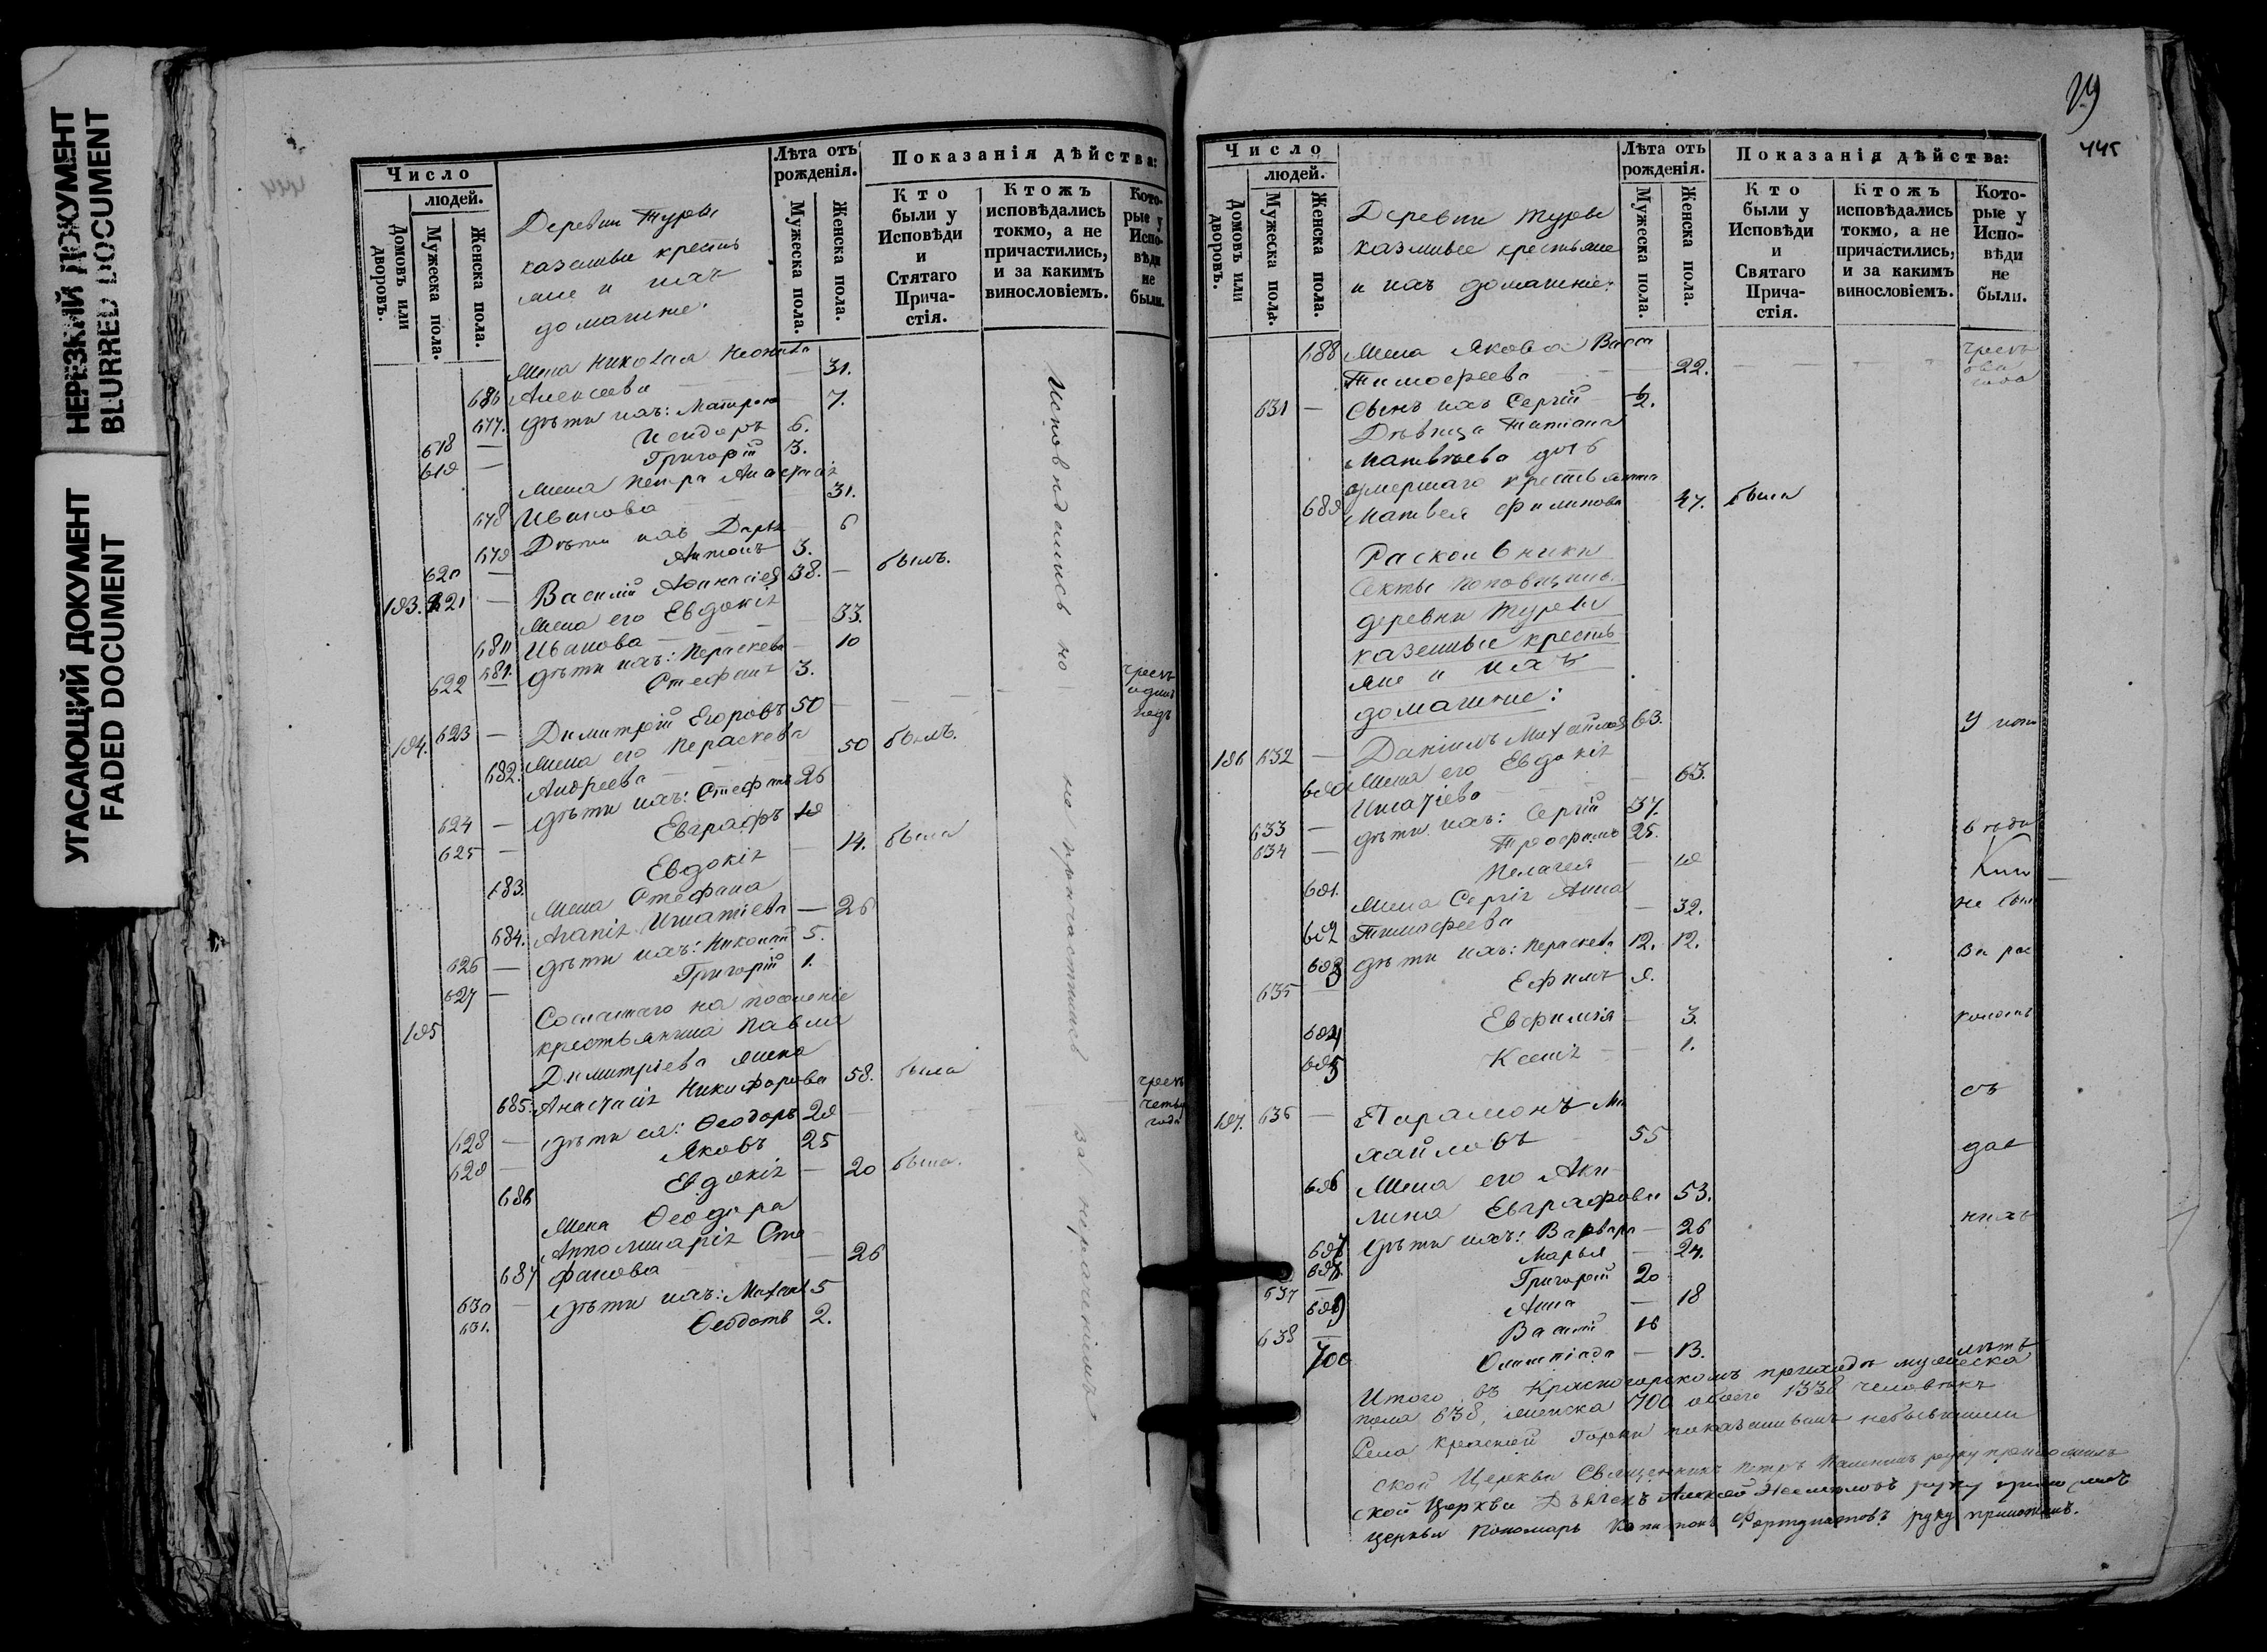 НЕРЕЗКИЙ ДОКУМЕНТ
BLURRED DOCUMENT
УГАСАЮЩИЙ ДОКУМЕНТ
FADED DOCUMENT
Число
людей.
Домовъ или дворовъ.
Мужеска пола.
Женска пола.
Деревни Турье
казенные кресть
яне и ихъ
домашние.
Лѣта отъ рожденія.
Мужеска пола.
Женска пола.
Показанія дѣйства:
Кто были у Исповѣди и Стятаго Прича-стія.
Ктожъ исповѣдались токмо, а не причастились, и за какимъ винословіемъ.
Кото-рые у Испо-вѣди не были.
Жена Николая
686 Алексеева 31.
677. дѣти ихъ: Матрона 7.
618 — Исидоръ 6.
619 — Григорій 3.
Жена Петра Анастасія
678 Иванова 31.
679 Дѣти ихъ Дарья 6
620 — Антонъ 3.
193. 621 — Василій Афанасіев 38. — былъ.
Жена его Евдокія
680 Иванова 33.
681. дѣти ихъ: Параскева 10
622 — Стефанъ 3.
194. 623 — Димитрій Егоровъ 50
чрезъ
одинъ
Жена его Параскева
682. Андреева 50 былъ.
624 — дѣти ихъ: Стефанъ 26
625 — Евграфъ 19
683. Евдокія — 14. была
Жена Стефана
684. Агапія Игнатіева — 26
626 — дѣти ихъ: Николай 5.
627 — Григорій 1.
195 Сосланнаго на поселеніе
крестьянина Павла
Димитріева жена
685. Анастасія Никифорова 58. была
628 — дѣти ея: Ѳеодоръ 29
чрезъ
четыре
года
629 — Яковъ 25
686 Евдокія — 20 была.
Жена Ѳеодора
Апполинарія Сте
687 фанова — 26
630 — дѣти ихъ: Михаилъ 5
631. Ѳеодотъ 2.
Исповѣдались но не причастились за нераченіемъ
29
445
Число
людей.
Домовъ или дворовъ.
Мужеска пола.
Женска пола.
Деревни Турье
казенные крестьяне
и ихъ домашние:
Лѣта отъ рожденія.
Мужеска пола.
Женска пола.
Показанія дѣйства:
Кто были у Исповѣди и Святаго Прича-стія.
Ктожъ исповѣдались токмо, а не причастились, и за какимъ винословіемъ.
Кото-рые у Испо-вѣди не были.
688 Жена Якова Васса
Тимофеева — 22.
чрезъ
два
года
631 — Сынъ ихъ Сергій 2.
Дѣвица Татіана
Матвѣева дочь
умершаго крестьянина
689 Матвея Филипова 47. была
Раскольники
Секты Поповщины
деревни Турье
казенные кресть
яне и ихъ
домашние:
196 632 — Даніилъ Михайлов 63.
690 Жена его Евдокія
Игнатіева — 63.
633 — дѣти ихъ: Сергій 37.
634 — Трофимъ 25.
691. Пелагея — 19
Жена Сергія Анна
692 Тимофеева — 32.
693 дѣти ихъ: Параскева 12. 12.
635 — Ефимъ 9.
694 Евфимія — 3.
695 Ксенія — 1.
197. 636 — Парамонъ Ми
хайловъ 55
696 Жена его Аки
лина Евграфова 53.
697 дѣти ихъ: Варвара — 26
698 Марья — 24.
637 — Григорій 20
699 Анна — 18
638 — Василій 16
700 Олимпіада — 13.
У испо
вѣди
не был
за рас
коломъ
съ
дав
нихъ
лѣтъ
Итого въ Красногорскомъ приходѣ мужеска
пола 638, женска 700 обоего 1338 человѣкъ
Села Красной Горки показаннымъ небывшими
ской Церкви Священникъ Петръ руку приложилъ
ской Церкви Дьячекъ Алексей руку приложилъ
Церкви Пономарь Капитонъ Фортунатовъ руку приложилъ.